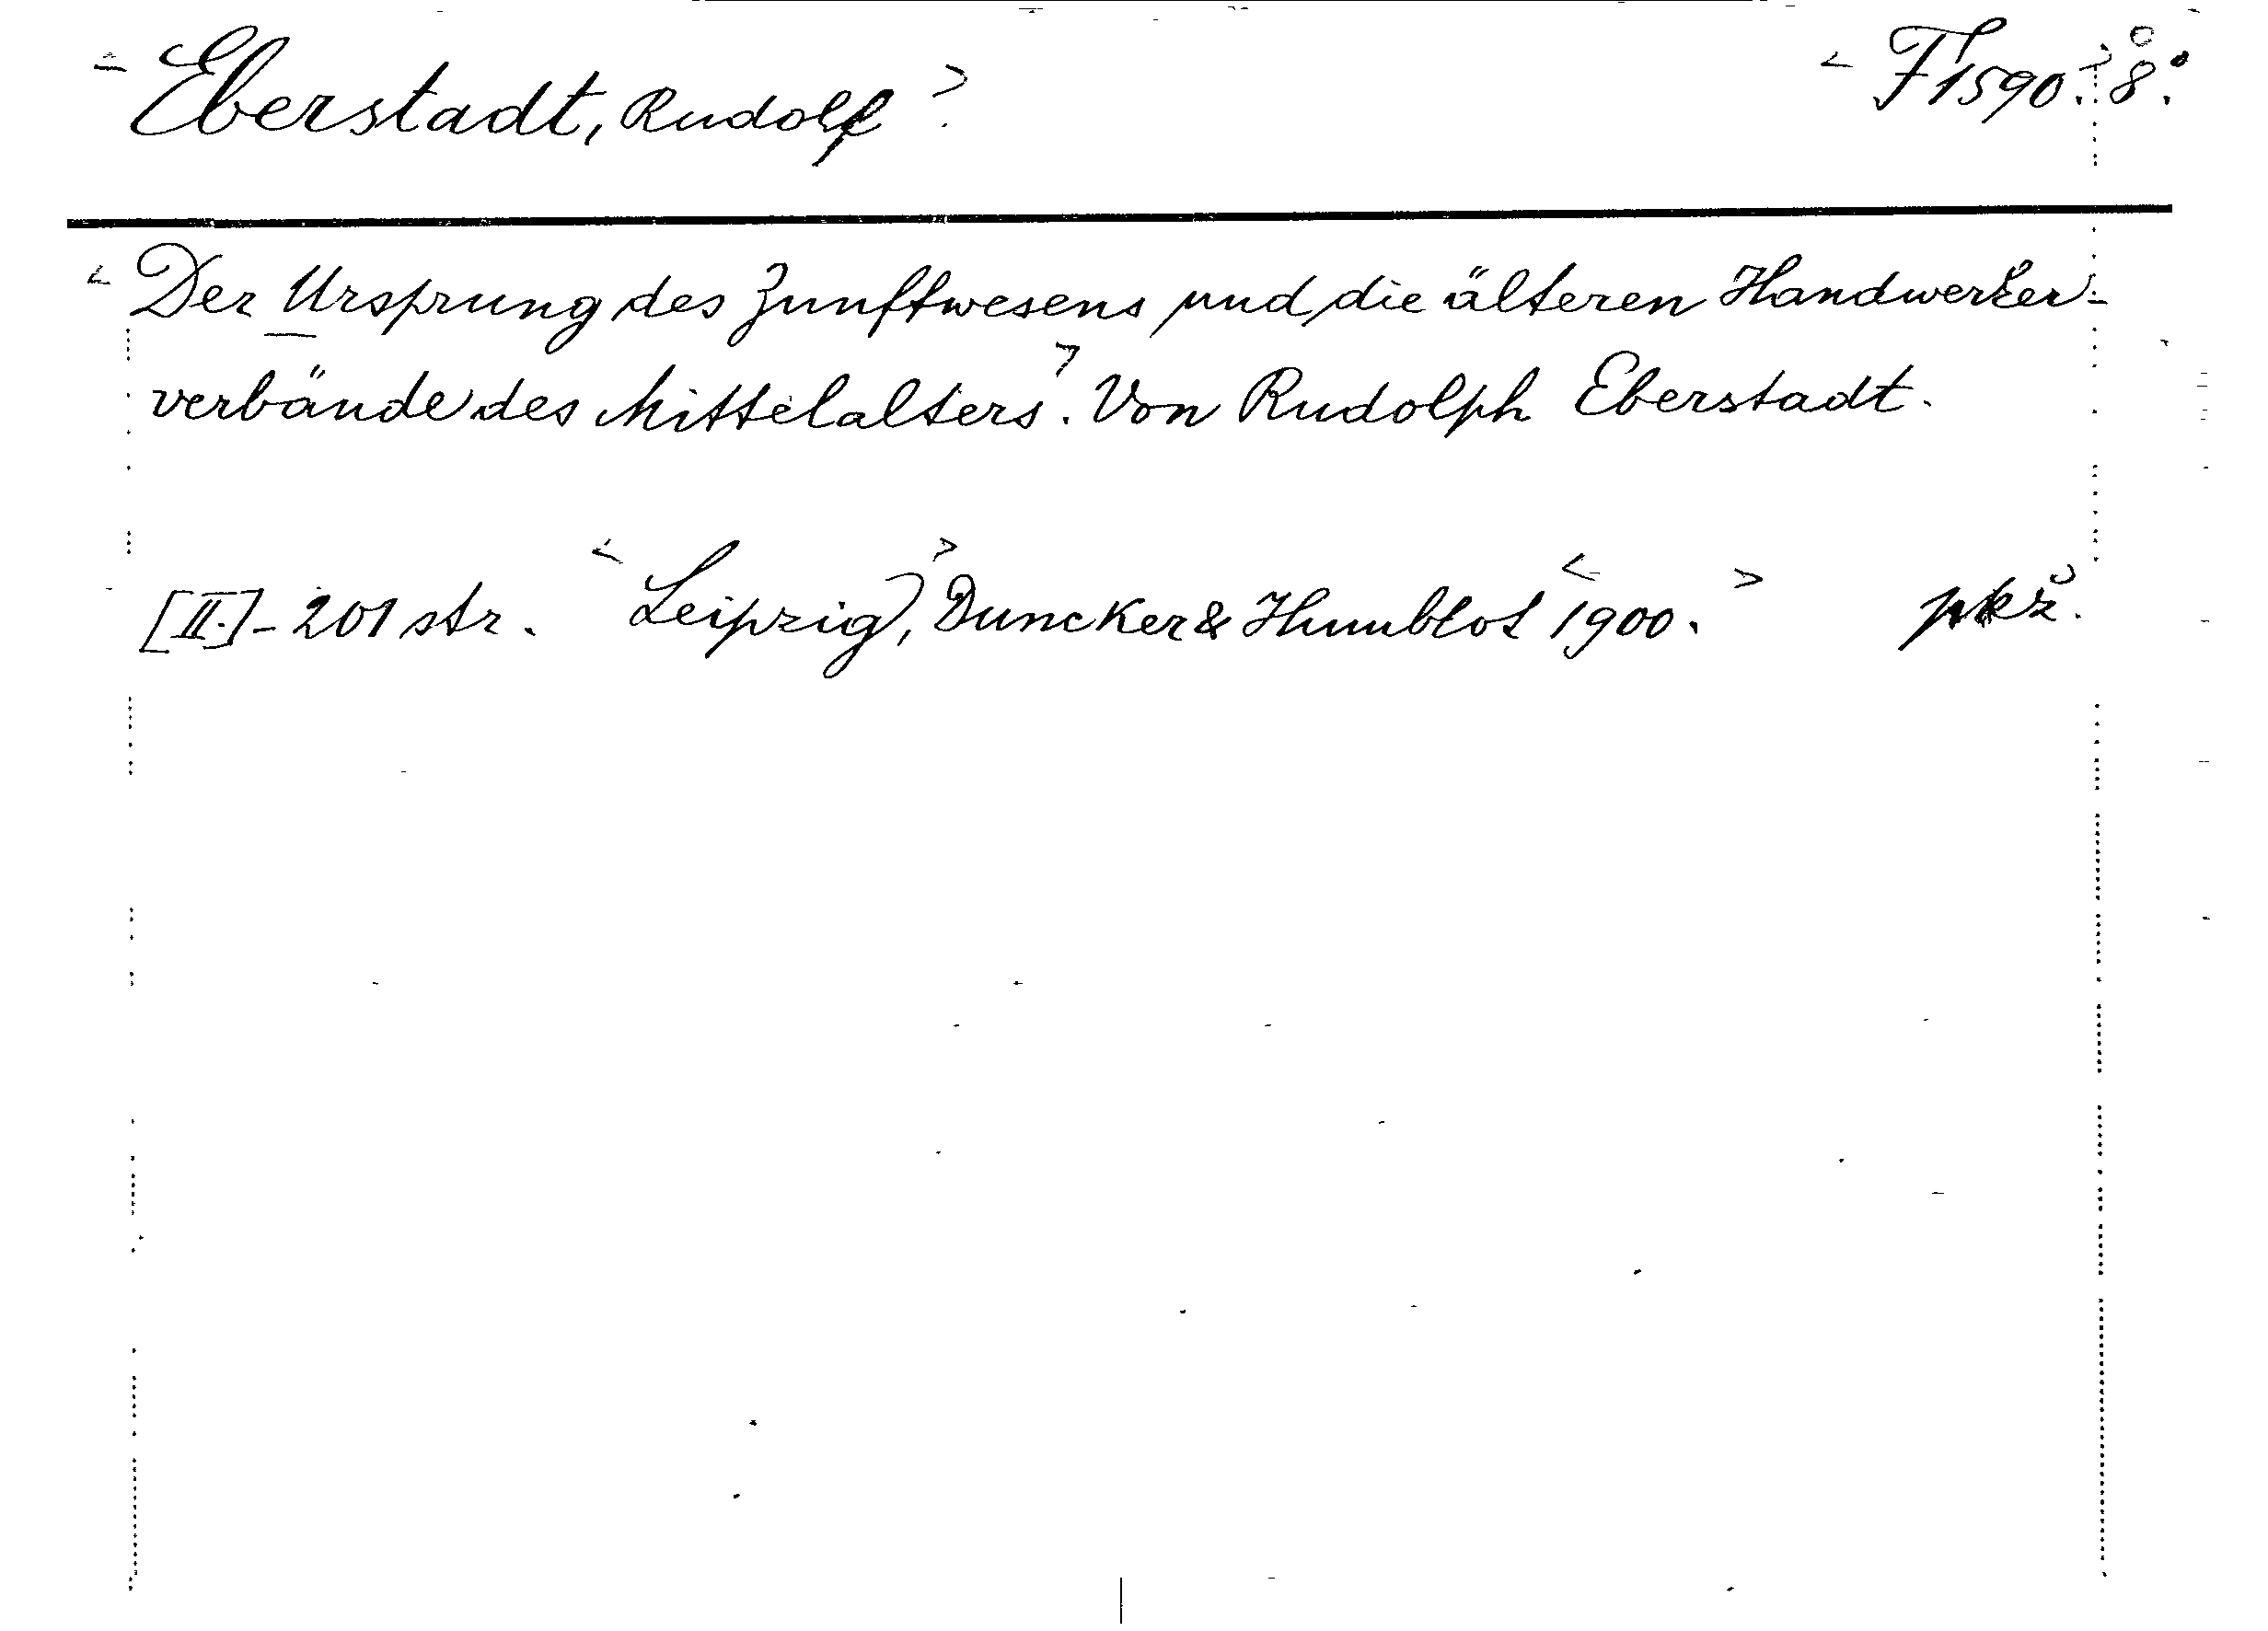 Eberstadt, Rudolf F 1590. 8°.
Der Ursprung des Zunftwesens und die älteren Handwerker-
verbände des Mittelalters. Von Rudolph Eberstadt.
[II.]-201 str. Leipzig, Duncker & Humblot 1900. pkž.